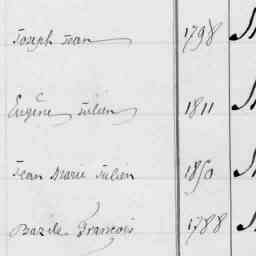 Joseph Jean 1798
Eugène Julien 1811
Jean Marie Julien 1850
Bazile François 1788